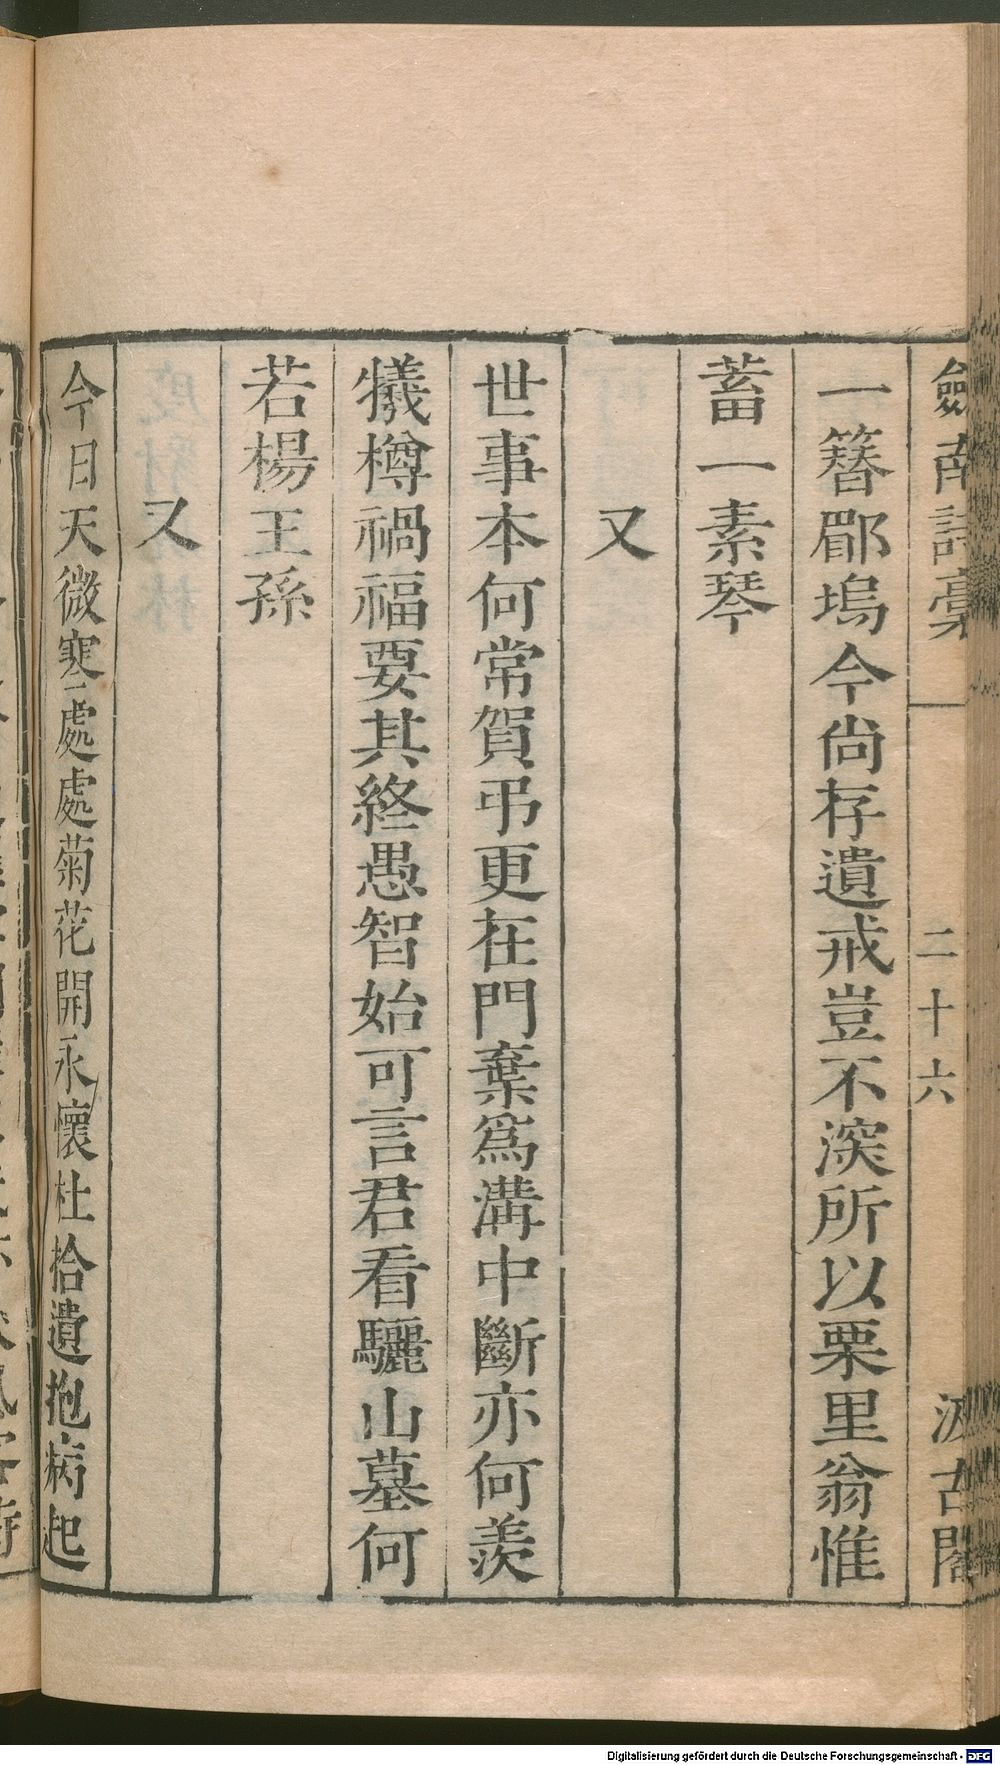 劒南詩稾 二十六 汲古閣
一簪郿塢今尙存遺戒豈不深所以栗里翁惟
蓄一素琴
又
世事本何常賀弔更在門棄爲溝中斷亦何羨
犧樽禍福要其終愚智始可言君看驪山墓何
若楊王孫
又
今日天微寒處處菊花開永懷杜拾遺抱病起
Digitalisierung gefördert durch die Deutsche Forschungsgemeinschaft - DFG